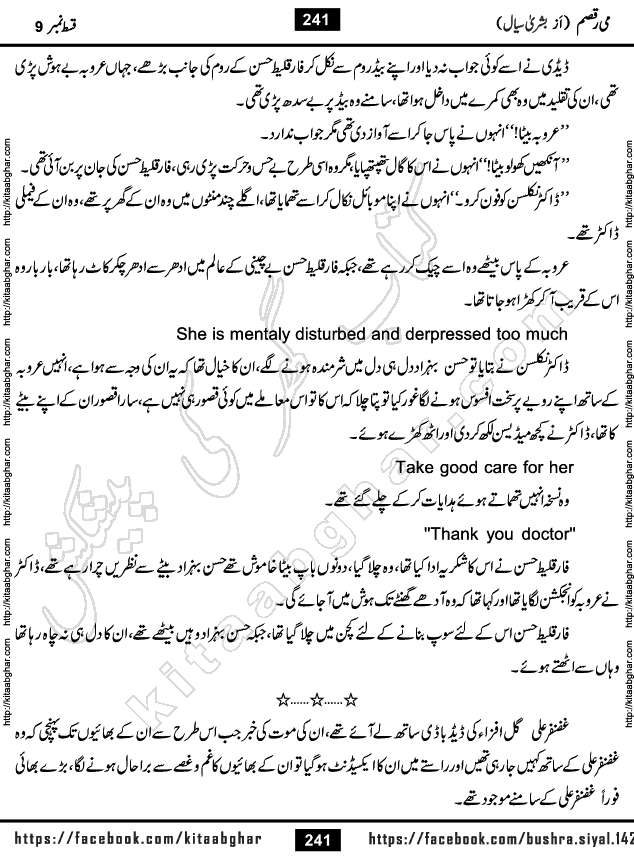 می رقصم (از بشریٰ سیال) 241 قسط نمبر 9
ڈیڈی نے اسے کوئی جواب نہ دیا اور اپنے بیڈ روم سے نکل کر فارقلیط حسن کے روم کی جانب بڑھے، جہاں عروبہ بے ہوش پڑی
تھی، ان کی تقلید میں وہ بھی کمرے میں داخل ہوا تھا، سامنے وہ بیڈ پر بے سدھ پڑی تھی۔
’’عروبہ بیٹا!‘‘ انہوں نے پاس جا کر اسے آواز دی تھی مگر جواب ندارد۔
’’آنکھیں کھولو بیٹا!‘‘ انہوں نے اس کا گال تھپتھپایا، مگر وہ اسی طرح بے حس و حرکت پڑی رہی، فارقلیط حسن کی جان پر بن آئی تھی۔
’’ڈاکٹر نکلسن کو فون کرو۔‘‘ انہوں نے اپنا موبائل نکال کر اسے تھمایا تھا، اگلے چند منٹوں میں وہ ان کے گھر پر تھے، وہ ان کے فیملی
ڈاکٹر تھے۔
عروبہ کے پاس بیٹھے وہ اسے چیک کر رہے تھے، جبکہ فارقلیط حسن بے چینی کے عالم میں ادھر سے ادھر چکر کاٹ رہا تھا، بار بار وہ
اس کے قریب آ کر کھڑا ہو جاتا تھا۔
She is mentaly disturbed and derpressed too much
ڈاکٹر نکلسن نے بتایا تو حسن بہزاد دل ہی دل میں شرمندہ ہونے لگے، ان کا خیال تھا کہ یہ ان کی وجہ سے ہوا ہے، انہیں عروبہ
کے ساتھ اپنے رویے پر سخت افسوس ہونے لگا غور کیا تو پتا چلا کہ اس کا تو اس معاملے میں کوئی قصور ہی نہیں ہے، سارا قصور ان کے اپنے بیٹے
کا تھا، ڈاکٹر نے کچھ میڈیسن لکھ کر دی اور اٹھ کھڑے ہوئے۔
Take good care for her
وہ نسخہ انہیں تھماتے ہوئے ہدایات کر کے چلے گئے تھے۔
"Thank you doctor"
فارقلیط حسن نے اس کا شکریہ ادا کیا تھا، وہ چلا گیا، دونوں باپ بیٹا خاموش تھے حسن بہزاد بیٹے سے نظریں چرا رہے تھے، ڈاکٹر
نے عروبہ کو انجکشن لگایا تھا اور کہا تھا کہ وہ آدھے گھنٹے تک ہوش میں آ جائے گی۔
فارقلیط حسن اس کے لئے سوپ بنانے کے لئے کچن میں چلا گیا تھا، جبکہ حسن بہزاد وہیں بیٹھے تھے، ان کا دل ہی نہ چاہ رہا تھا
وہاں سے اٹھتے ہوئے۔
☆......☆......☆
غضنفر علی گل افزاء کی ڈیڈ باڈی ساتھ لے آئے تھے، ان کی موت کی خبر جب اس طرح سے ان کے بھائیوں تک پہنچی کہ وہ
غضنفر علی کے ساتھ کہیں جا رہی تھیں اور راستے میں ان کا ایکسیڈنٹ ہو گیا تو ان کے بھائیوں کا غم و غصے سے برا حال ہونے لگا، بڑے بھائی
فوراً غضنفر علی کے سامنے موجود تھے۔
https://facebook.com/kitaabghar 241 https://facebook.com/bushra.siyal.142
http://kitaabghar.com http://kitaabghar.com http://kitaabghar.com http://kitaabghar.com http://kitaabghar.com http://kitaabghar.com
http://kitaabghar.com http://kitaabghar.com http://kitaabghar.com http://kitaabghar.com http://kitaabghar.com http://kitaabghar.com
کتاب گھر کی پیشکش
kitaabghar.com